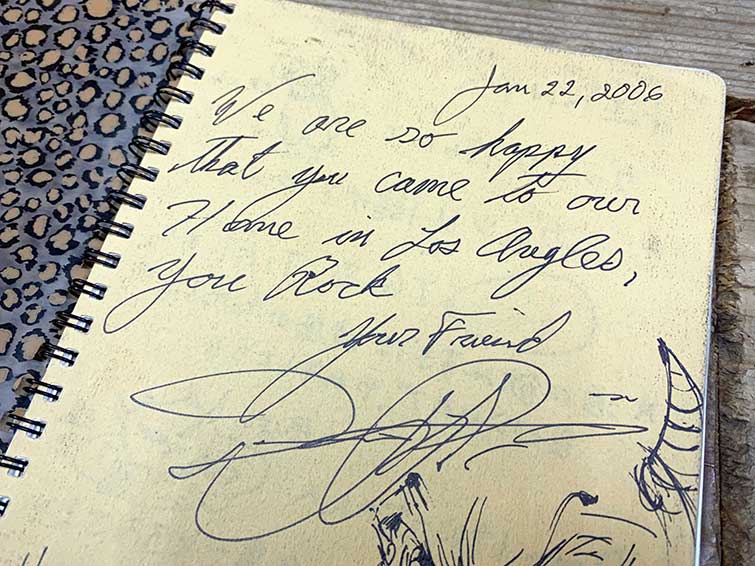 Jan 22, 2006
We are so happy
that you came to our
Home in Los Angles,
You Rock
Your Friend